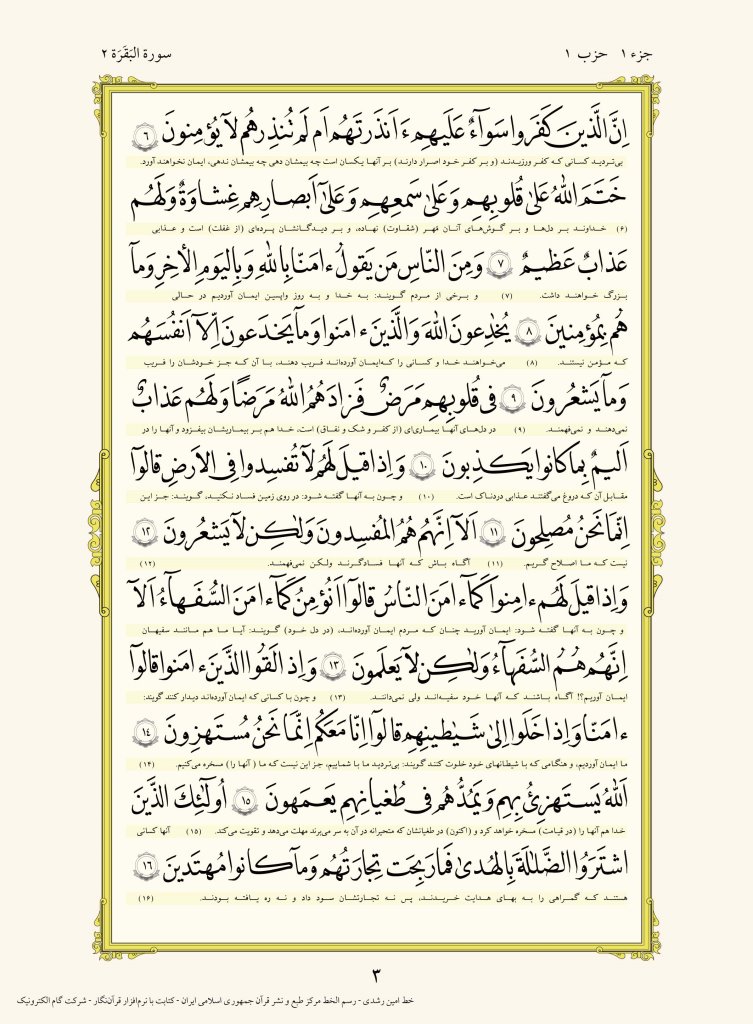 جزء ۱ حزب ۱ سورة البَقَرَة ۲
اِنَّ الَّذینَ کَفَروا سَوآءٌ عَلَیهِم ءَاَنذَرتَهُم اَم لَم تُنذِرهُم لا یُؤمِنونَ ﴿٦﴾
بی‌تردید کسانی که کفر ورزیدند (و بر کفر خود اصرار دارند) بر آنها یکسان است چه بیمشان دهی چه بیمشان ندهی، ایمان نخواهند آورد.
خَتَمَ اللهُ عَلیٰ قُلوبِهِم وَ عَلیٰ سَمعِهِم وَ عَلیٰٓ اَبصارِهِم غِشاوَةٌ وَ لَهُم
(۶) خداوند بر دل‌ها و بر گوش‌های آنان مُهر (شقاوت) نهاده، و بر دیدگانشان پرده‌ای (از غفلت) است و عذابی
عَذابٌ عَظیمٌ ﴿۷﴾ وَ مِنَ النّاسِ مَن یَقولُ ءامَنّا بِاللهِ وَ بِالیَومِ الأخِرِ وَ مآ
بزرگ خواهند داشت. (۷) و برخی از مردم گویند: به خدا و به روز واپسین ایمان آوردیم در حالی
هُم بِمُؤمِنینَ ﴿۸﴾ یُخٰدِعونَ اللهَ وَ الَّذینَ ءامَنوا وَ مآ یَخدَعونَ اِلّآ اَنفُسَهُم
که مؤمن نیستند. (۸) می‌خواهند خدا و کسانی را که‌ایمان آورده‌اند فریب دهند، با آن که جز خودشان را فریب
وَ مآ یَشعُرونَ ﴿۹﴾ فی قُلوبِهِم مَرَضٌ فَزادَهُمُ اللهُ مَرَضًا وَ لَهُم عَذابٌ
نمی‌دهند و نمی‌فهمند. (۹) در دل‌های آنها بیماری‌ای (از کفر و شک و نفاق) است، خدا هم بر بیماریشان بیفزود و آنها را در
اَلیمٌ بِما کانوا یَکذِبونَ ﴿۱۰﴾ وَ اِذا قیلَ لَهُم لا تُفسِدوا فِی الاَرضِ قالوٓا
مقابل آن که دروغ می‌گفتند عذابی دردناک است. (۱۰) و چون به آنها گفته شود: در روی زمین فساد نکنید، گویند: جز این
اِنَّما نَحنُ مُصلِحونَ ﴿۱۱﴾ اَلآ اِنَّهُم هُمُ المُفسِدونَ وَ لٰکِن لا یَشعُرونَ ﴿۱۲﴾
نیست که ما اصلاح گریم. (۱۱) آگاه باش که آنها فسادگرند ولکن نمی‌فهمند. (۱۲)
وَ اِذا قیلَ لَهُم ءامِنوا کَمآ ءامَنَ النّاسُ قالوٓا اَنُؤمِنُ کَمآ ءامَنَ السُّفَهآءُ اَلآ
و چون به آنها گفته شود: ایمان آورید چنان که مردم ایمان آورده‌اند، (در دل خود) گویند: آیا ما هم مانند سفیهان
اِنَّهُم هُمُ السُّفَهآءُ وَ لٰکِن لا یَعلَمونَ ﴿۱۳﴾ وَ اِذا لَقُوا الَّذینَ ءامَنوا قالوٓا
ایمان آوریم؟! آگاه باشند که آنها خود سفیه‌اند ولی نمی‌دانند. (۱۳) و چون با کسانی که ایمان آورده‌اند دیدار کنند گویند:
ءامَنّا وَ اِذا خَلَوا اِلیٰ شَیٰطینِهِم قالوٓا اِنّا مَعَکُم اِنَّما نَحنُ مُستَهزِونَ ﴿۱۴﴾
ما ایمان آوردیم، و هنگامی که با شیطانهای خود خلوت کنند گویند: بی‌تردید ما با شماییم، جز این نیست که ما (آنها را) مسخره می‌کنیم. (۱۴)
اَللهُ یَستَهزِئُ بِهِم وَ یَمُدُّهُم فی طُغیانِهِم یَعمَهونَ ﴿۱۵﴾ اُولٰٓئِکَ الَّذینَ
خدا هم آنها را (در قیامت) مسخره خواهد کرد و (اکنون) در طغیانشان که متحیرانه در آن به سر می‌برند مهلت می‌دهد و تقویت می‌کند. (۱۵) آنها کسانی
اشتَرَوُا الضَّلٰلَةَ بِالهُدیٰ فَما رَبِحَت تِجارَتُهُم وَ مآ کانوا مُهتَدینَ ﴿۱۶﴾
هستند که گمراهی را به بهای هدایت خریدند، پس نه تجارتشان سود داد و نه ره یافته بودند. (۱۶)
۳
خط امین رشدی - رسم الخط مرکز طبع و نشر قرآن جمهوری اسلامی ایران - کتابت با نرم‌افزار قرآن‌نگار - شرکت گام الکترونیک